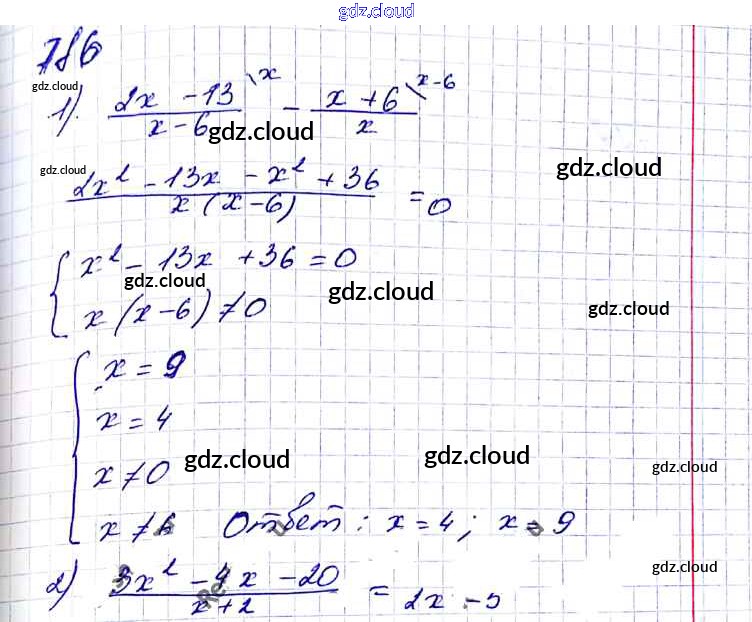 gdz.cloud
786
gdz.cloud
1) (2x - 13)/(x - 6) \x - (x + 6)/x \x-6
gdz.cloud
gdz.cloud
gdz.cloud
(2x² - 13x - x² + 36)/(x (x - 6)) = 0
{ x² - 13x + 36 = 0
gdz.cloud
gdz.cloud
gdz.cloud
x (x - 6) ≠ 0
{ x = 9
x = 4
gdz.cloud
gdz.cloud
gdz.cloud
x ≠ 0
x ≠ 6 Ответ: x = 4; x = 9
gdz.cloud
2) (3x² - 4x - 20)/(x + 2) = 2x - 5